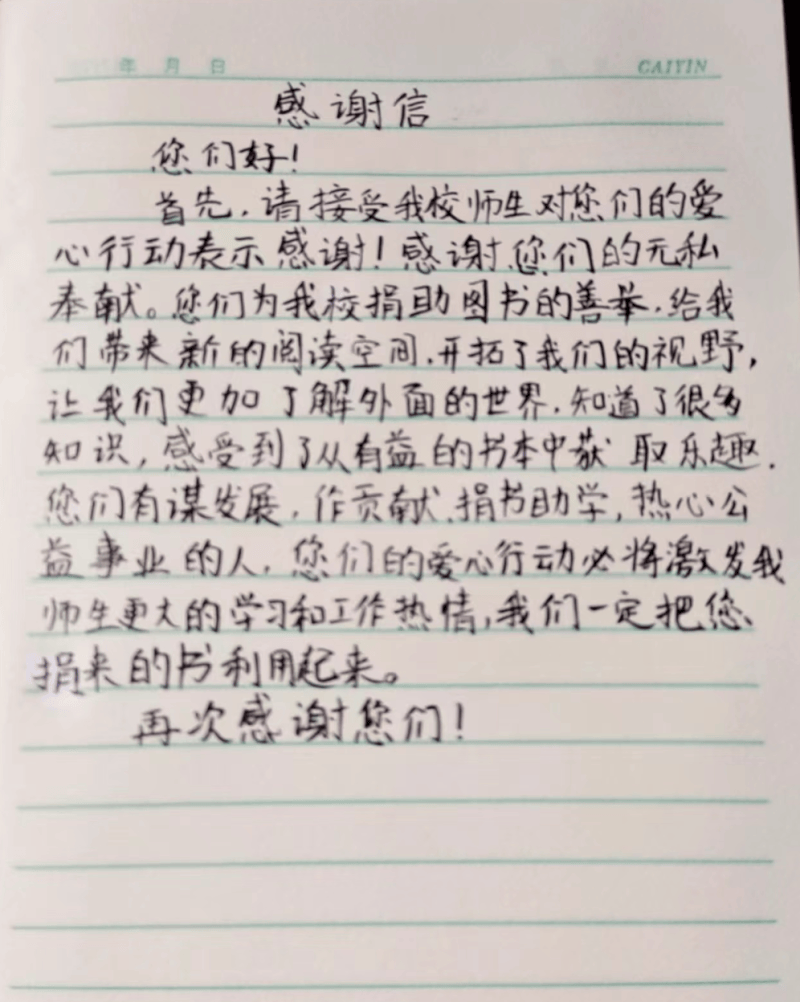 年 月 日 CAIYIN
感谢信
您们好！
首先，请接受我校师生对您们的爱
心行动表示感谢！感谢您们的无私
奉献。您们为我校捐助图书的善举，给我
们带来新的阅读空间，开拓了我们的视野，
让我们更加了解外面的世界，知道了很多
知识，感受到了从有益的书本中获取乐趣．
您们有谋发展，作贡献、捐书助学，热心公
益事业的人，您们的爱心行动必将激发我
师生更大的学习和工作热情，我们一定把您
捐来的书利用起来。
再次感谢您们！